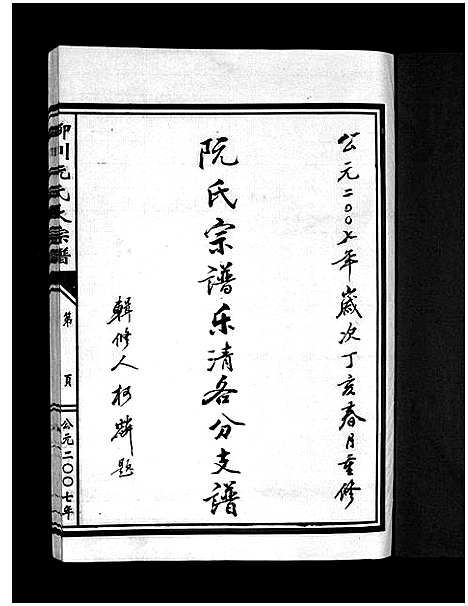 公元二00七年歲次丁亥春月重修
阮氏宗譜乐清各分支譜
輯修人柯麟題
柳川阮氏大宗譜
第 頁
公元二〇〇七年